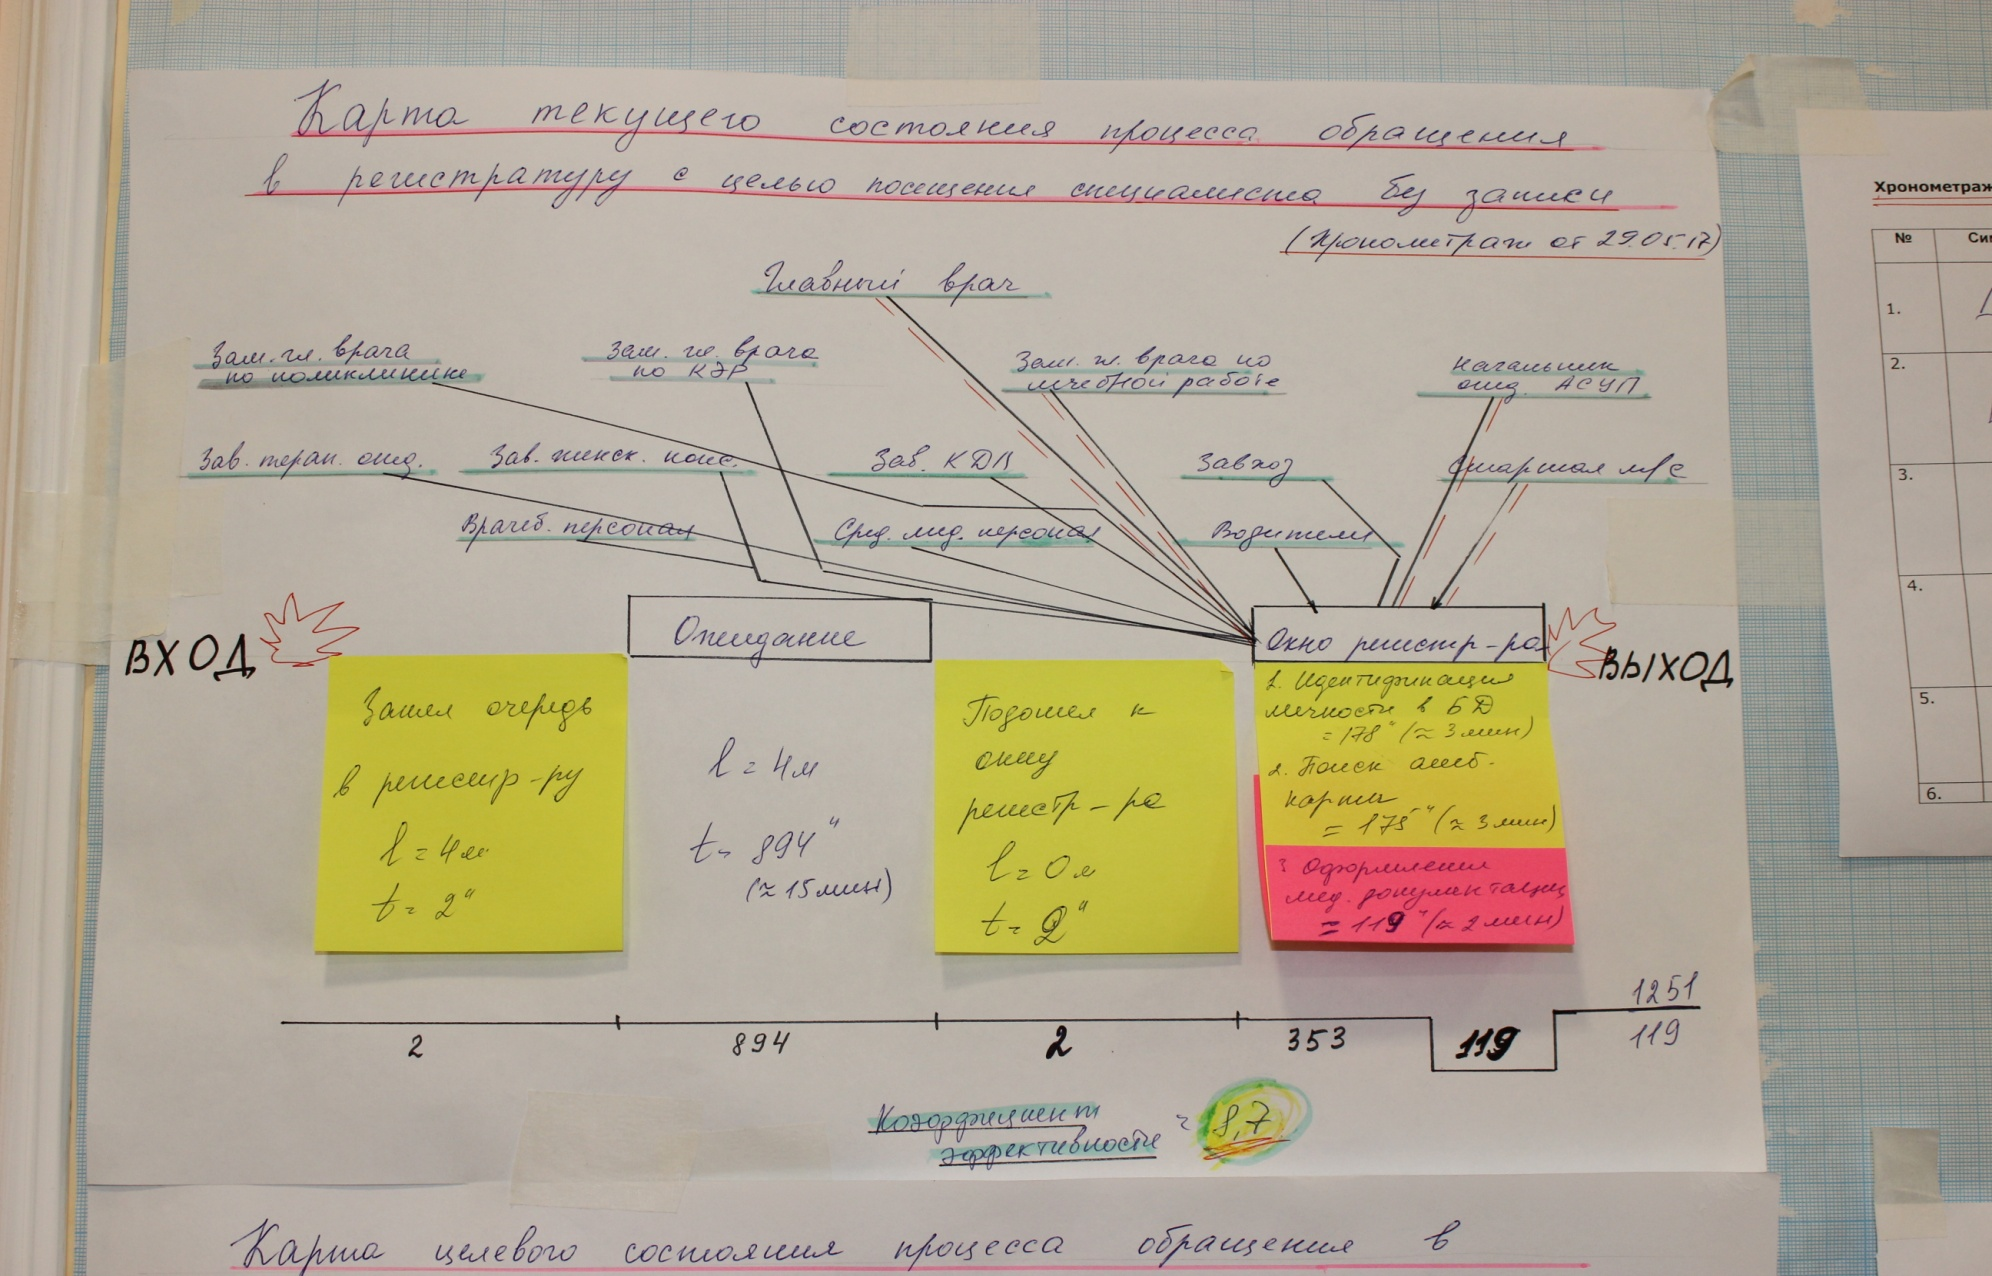 Карта текущего состояния процесса обращения
в регистратуру с целью посещения специалиста бу записи
(Хронометраж от 29.05.17)
Главный врач
Зам. гл. врача
по поликлинике
Зам. гл. врача
по КЭР
Зам. гл. врача по
лечебной работе
Начальник
отд. АСУП
Зав. терап. отд.
Зав. женск. конс.
Зав. КДЛ
Завхоз
Старшая м/с
Врачеб. персонал
Сред. мед. персонал
Водители
ВХОД
Ожидание
Окно регистр-ра
ВЫХОД
Зашел очередь
в регистр-ру
l = 4м
t = 2"
l = 4м
t = 894"
(≈ 15 мин)
Подошел к
окну
регистр-ра
l = 0м
t = 2"
1. Идентификация
личности в БД
= 178" (≈ 3 мин)
2. Поиск амб.
карты
= 175" (≈ 3 мин)
3 Оформления
мед. документации
= 119" (≈ 2 мин)
2
894
2
353
119
1251
119
Коэффициент
эффективности
= 8,7
Карта целевого состояния процесса обращения в
Хронометраж
№
1.
2.
3.
4.
5.
6.